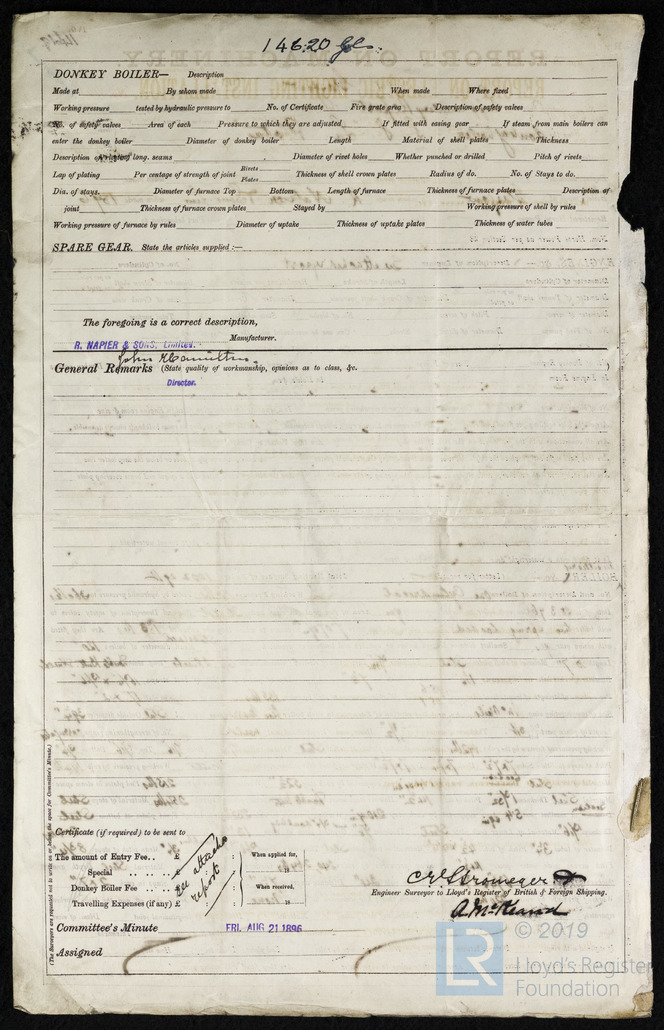 14620 Gls.
DONKEY BOILER— Description
Made at By whom made When made Where fixed
Working pressure tested by hydraulic pressure to No. of Certificate Fire grate area Description of safety valves
No. of safety valves Area of each Pressure to which they are adjusted If fitted with easing gear If steam from main boilers can
enter the donkey boiler Diameter of donkey boiler Length Material of shell plates Thickness
Description of riveting long. seams Diameter of rivet holes Whether punched or drilled Pitch of rivets
Lap of plating Per centage of strength of joint Rivets Plates Thickness of shell crown plates Radius of do. No. of Stays to do.
Dia. of stays. Diameter of furnace Top Bottom Length of furnace Thickness of furnace plates Description of
joint Thickness of furnace crown plates Stayed by Working pressure of shell by rules
Working pressure of furnace by rules Diameter of uptake Thickness of uptake plates Thickness of water tubes
SPARE GEAR. State the articles supplied :—
The foregoing is a correct description,
R. NAPIER & SONS, Limited. Manufacturer.
John Hamilton.
General Remarks (State quality of workmanship, opinions as to class, &c. )
Director.
Certificate (if required) to be sent to
The amount of Entry Fee . . £ : : When applied for,
Special . . . . £ : : 18
Donkey Boiler Fee . . . . £ : : When received,
Travelling Expenses (if any) £ : : 18
See attached
report
Engineer Surveyor to Lloyd's Register of British & Foreign Shipping.
A. McKeand
Committee's Minute FRI. AUG 21 1896
Assigned
(The Surveyors are requested not to write on or below the space for Committee's Minute.)
LR © 2019
Lloyd's Register
Foundation